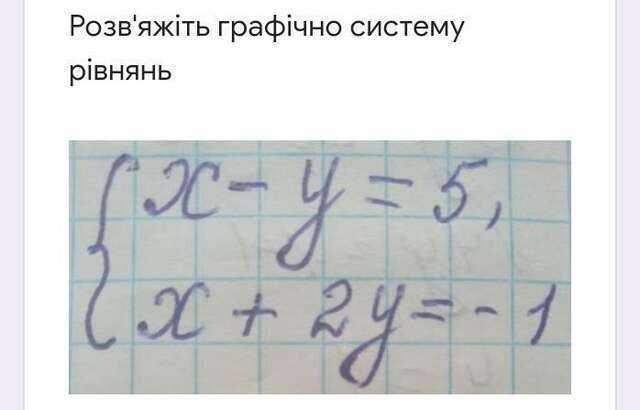 Розв'яжіть графічно систему
рівнянь
x - y = 5,
x + 2y = - 1